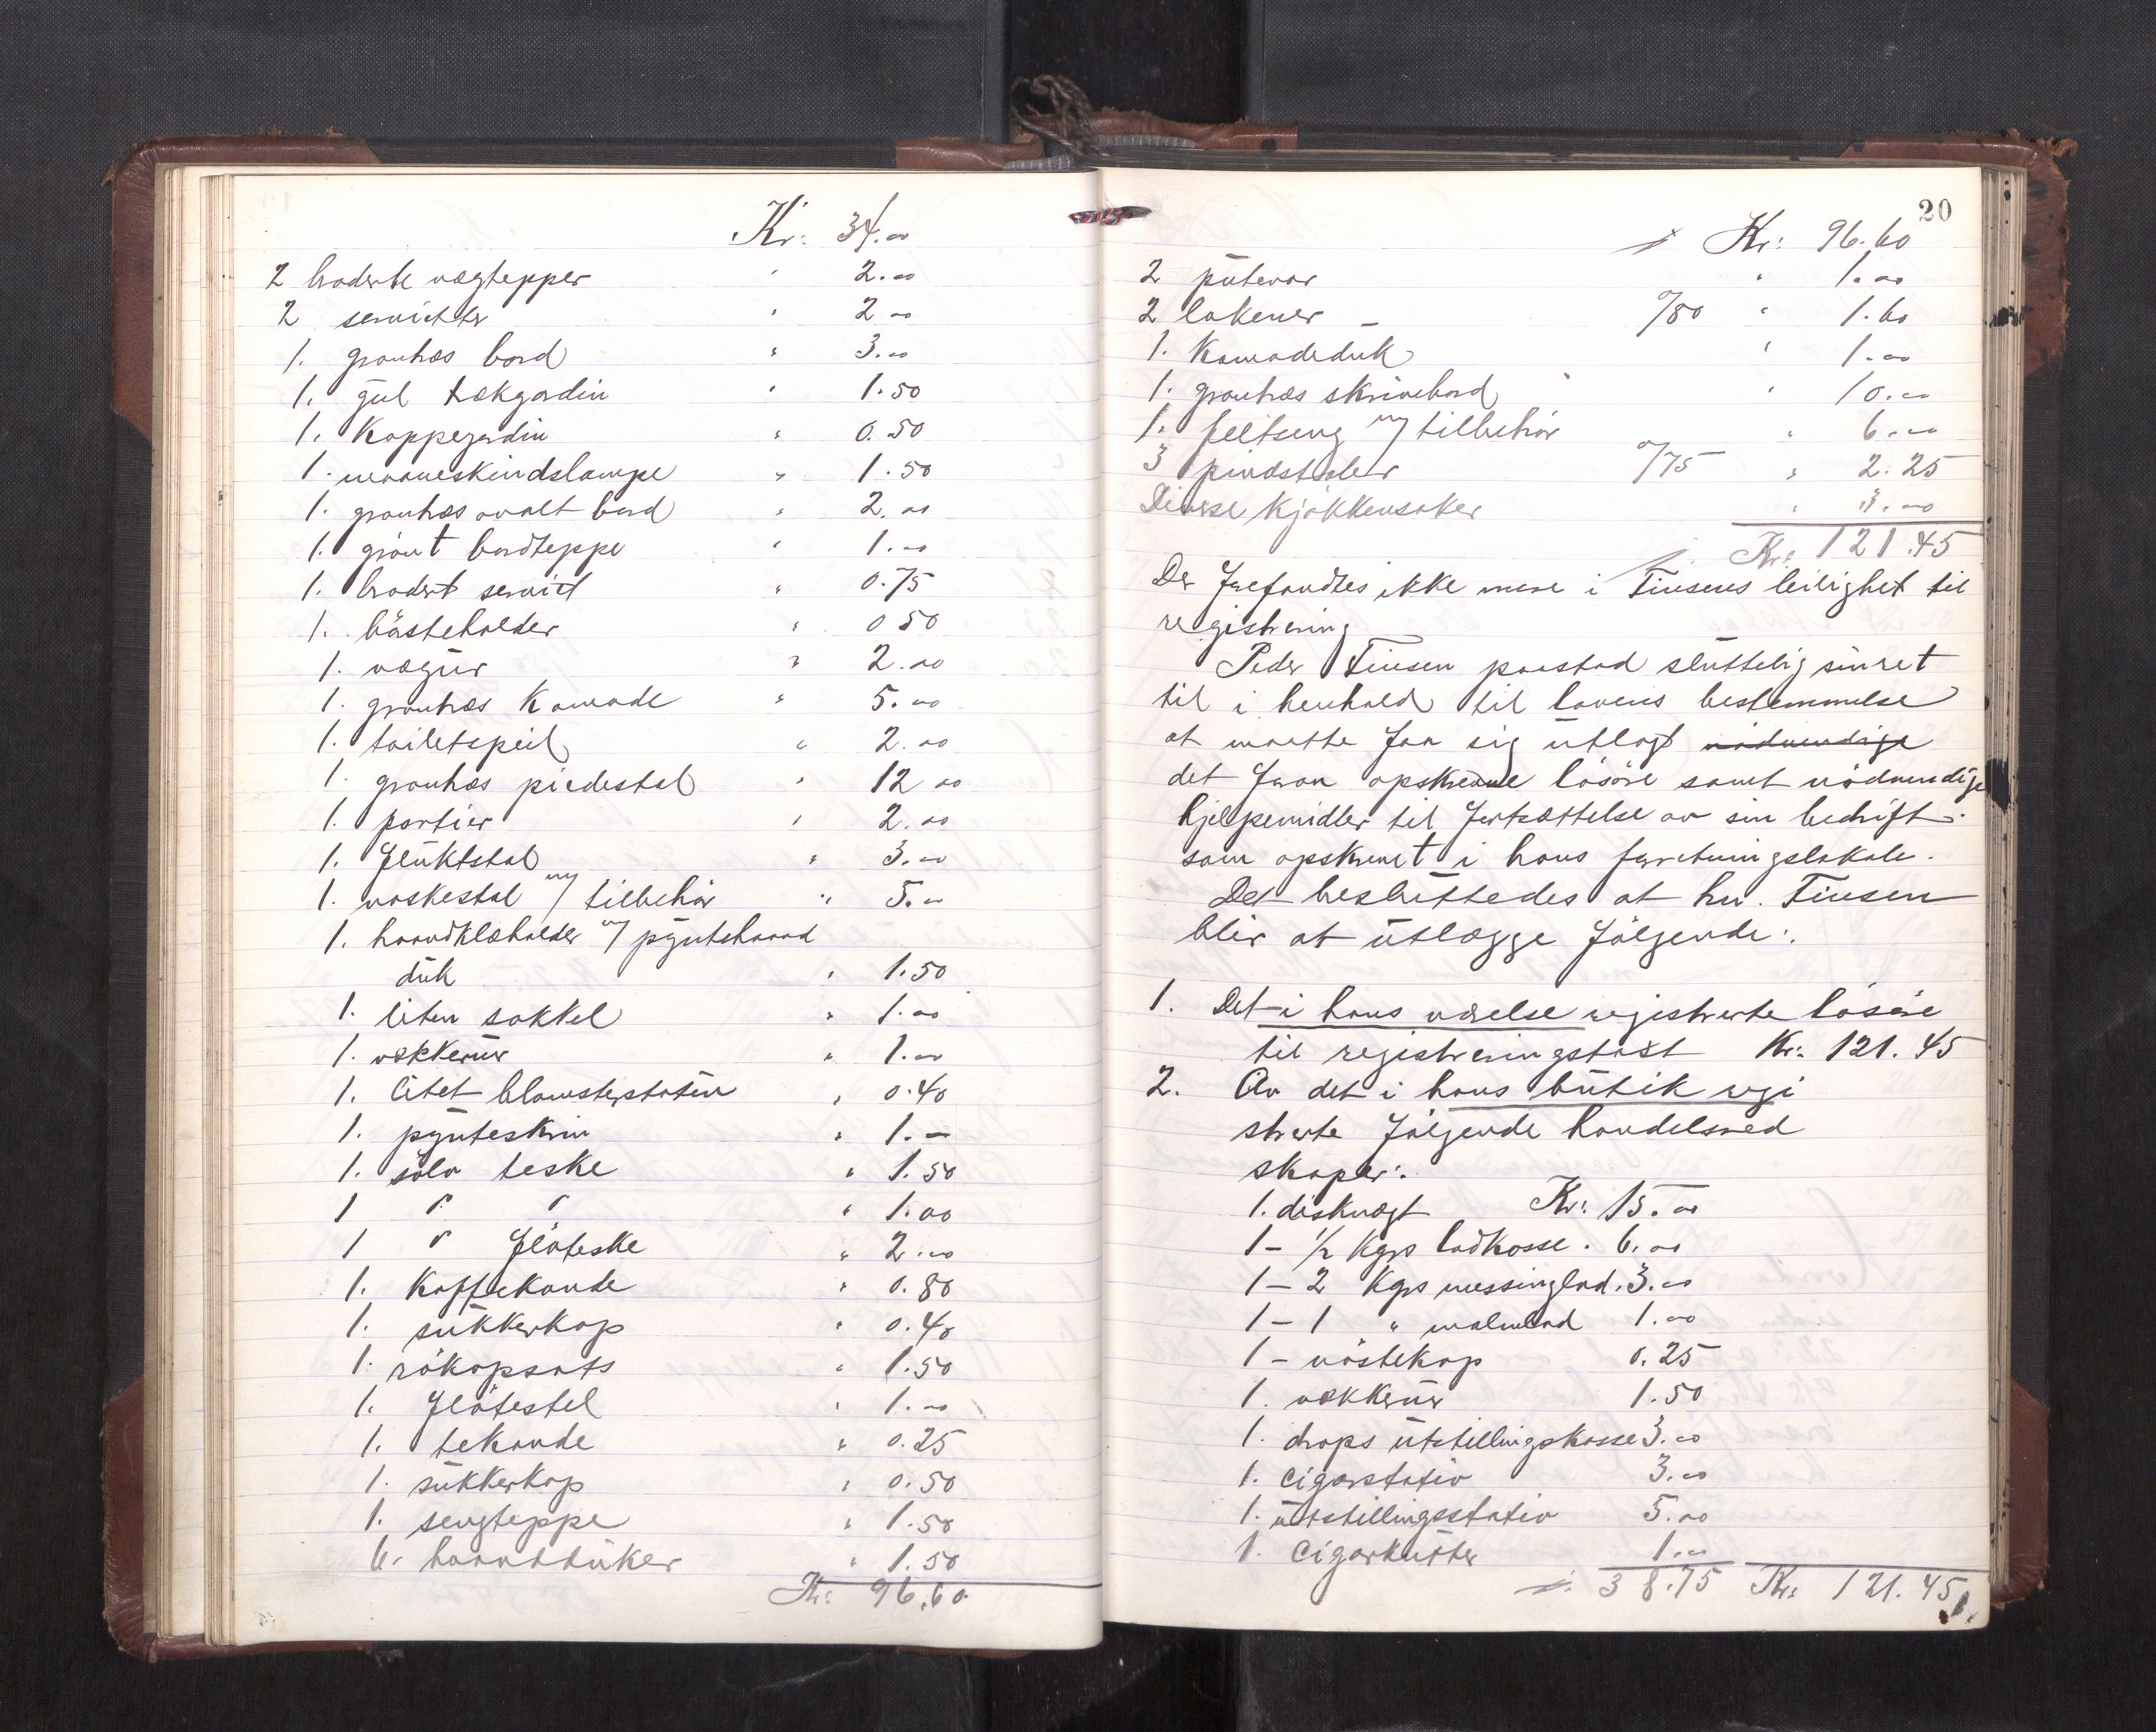 Kr: 34.00
2 broderte vægtepper " 2.00
2 servietter " 2 00
1. grøntræs bord " 3.00
1. gul trækgardin " 1.50
1. Kappegardin " 0.50
1. maaneskindslampe " 1.50
1. grøntræs ovalt bord " 2.00
1. grønt bordteppe " 1.00
1. brodert serviet " 0.75
1. børsteholder " 0 50
1. vægur " 2.00
1. grøntræs Komode " 5.00
1. toiletspeil " 2.00
1. grøntræs piedestal " 12 00
1. portier " 2.00
1. fluktstol " 3.00
1. vaskestol m/ tilbehør " 5.00
1. haandklæholder m/ pyntehaand
duk " 1.50
1. liten sokkel " 1.00
1. vækkerur " 1.00
1. litet blomsterstativ " 0.40
1. pynteskrin " 1.—
1. sølv teske " 1.50
1 " " " 1.00
1 " fløteske " 2.00
1. Kaffekande " 0.80
1. sukkerkop " 0.40
1. røkopsats " 1.50
1. fløtestel " 1.00
1. tekande " 0.25
1. sukkerkop " 0.50
1. sengteppe " 1.50
6. haandduker " 1.50
Kr: 96.60
20
Kr: 96.60
2 putevar " 1.00
2 lakener – 0/80 " 1.60
1. Komodeduk " 1.00
1. grøntræs skrivebord " 10.00
1. feltseng m/ tilbehør " 6.00
3 pindstoler 0/75 " 2.25
Diverse Kjøkkensaker " 3.00
Kr: 121.45
Der forefandtes ikke mere i Tinsens leilighet til
registrering
Peder Tinsen paastod sluttelig sin ret
til i henhold til lovens bestemmelse
at maatte faa sig utlagt nødvendige
det foran opskrevne løsøre samt nødvendige
hjelpemidler til fortsættelse av sin bedrift
som opskrevet i hans forretningslokale.
Det besluttedes at hr. Tinsen
blir at utlægge følgende:
1. Det i hans værelse registrerte løsøre
til registreringstakst Kr: 121.45
2. Av det i hans butik regi
strerte følgende handelsred
skaper:
1. diskvægt Kr: 15.00
1 – 1/2 Kgrs lodkasse . 6.00
1 – 2 Kgrs messinglod. 3.00
1 – 1 " malmlod 1.00
1 – vøstekop 0.25
1. vækkerur 1.50
1. drops utstillingskasse 3.00
1. cigarstativ 3.00
1. utstillingsstativ 5.00
1. cigarkutter 1.00
38.75 Kr: 121.45